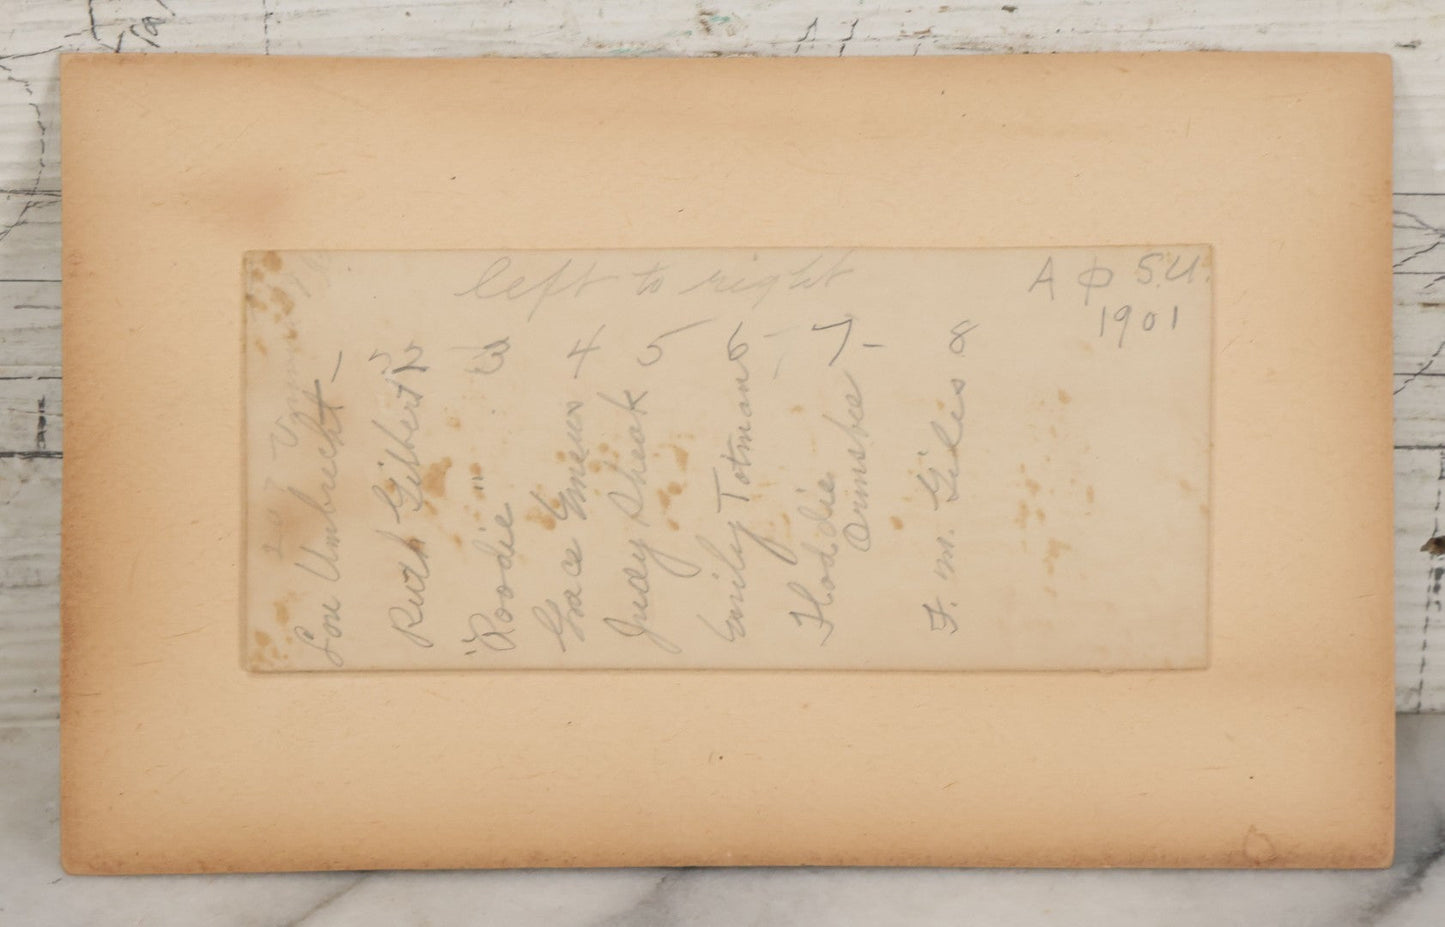 left to right
A Φ S.U.
1901
Lou Umbrecht -
Ruth Gilbert 2
"Roodie" 3
Grace 4
Judy Sheak 5
Emily Totman 6
Floddie 7 -
Ormsbee
F. M. Giles 8